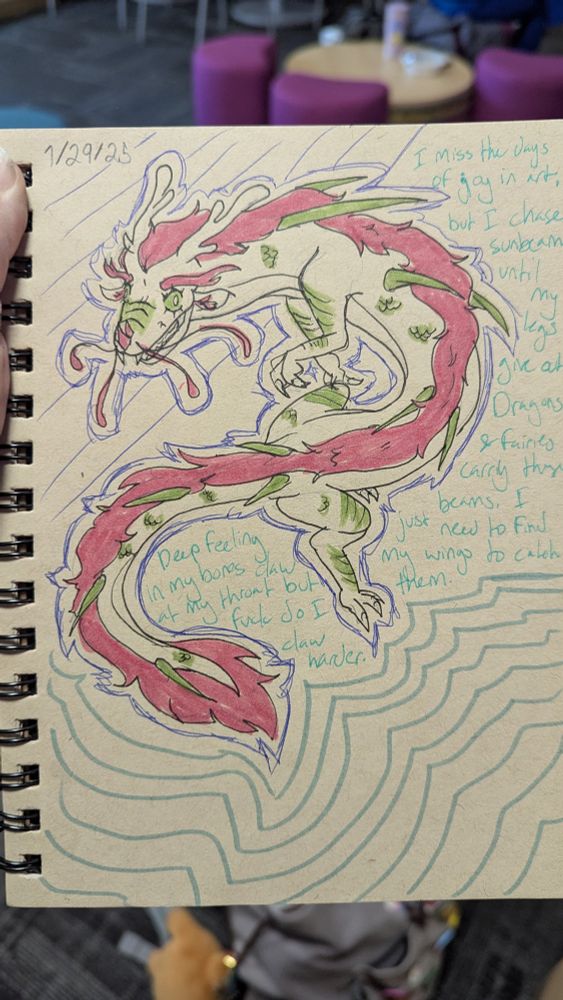 1/29/25
I miss the days
of joy in art,
but I chase
sunbeam
until
my
legs
give out
Dragons
& fairies
carry these
beams. I
just need to find
my wings to catch
them.
Deep feeling
in my bones claw
at my throat but
fuck do I
claw
harder.